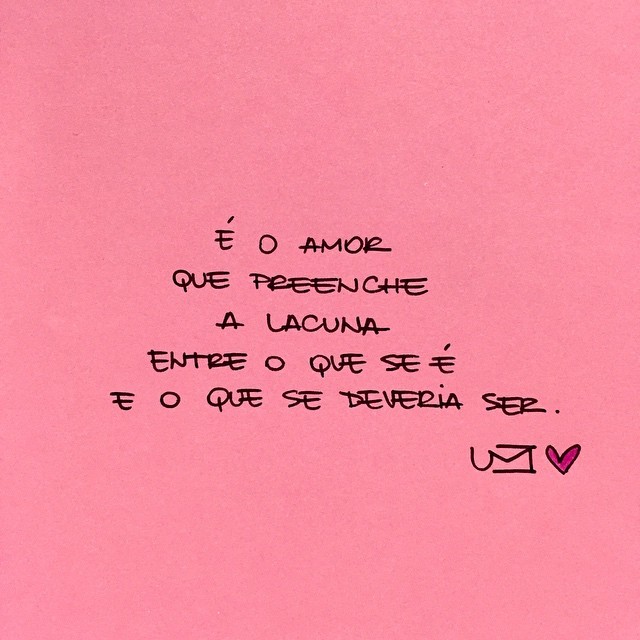 É O AMOR
QUE PREENCHE
A LACUNA
ENTRE O QUE SE É
E O QUE SE DEVERIA SER.